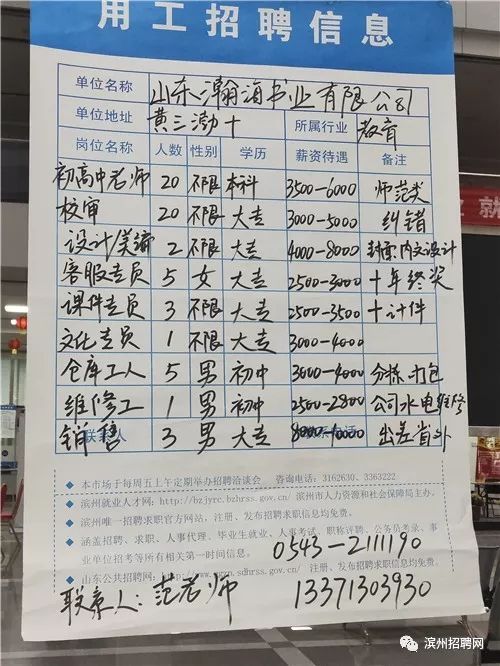 用工招聘信息
单位名称 山东瀚海书业有限公司
单位地址 黄三渤十 所属行业 教育
岗位名称 人数 性别 学历 薪资待遇 备注
初高中老师 20 不限 本科 3500-6000 师范类
校审 20 不限 大专 3000-5000 纠错
设计/美编 2 不限 大专 4000-8000 封面、内文设计
客服专员 5 女 大专 2500-3000 +年终奖
课件专员 3 不限 大专 2500-3500 +计件
文化专员 1 不限 大专 3000-4000
仓库工人 5 男 初中 3000-4000 分拣、打包
维修工 1 男 初中 2500-2800 公司水电维修
销售 3 男 大专 8000-10000 出差省外
联系人
◆ 本市场于每周五上午定期举办招聘洽谈会 咨询电话:3162630、3363222
◆ 滨州就业人才网:http://bzjyrc.bzhrss.gov.cn/ 滨州市人力资源和社会保障局主办。
◆ 滨州唯一招聘求职官方网站,注册、发布招聘求职信息均免费。
◆ 涵盖招聘、求职、人事代理、毕业生就业、人事考试、职称评聘、公务员考录、事
业单位招考等所有相关第一时间信息。
0543-2111190
◆ 山东公共招聘网:http://www.sdhrss.gov.cn/ 注册、发布招聘求职信息均免费。
联系人:范老师 13371303930
滨州招聘网